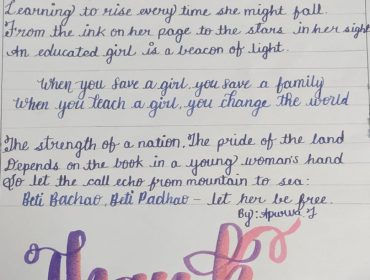 Learning to rise every time she might fall.
From the ink on her page to the stars in her sight
An educated girl is a beacon of light.
When you save a girl, you save a family
When you teach a girl, you change the world
The strength of a nation, The pride of the land
Depends on the book in a young woman's hand
So let the call echo from mountain to sea:
Beti Bachao, Beti Padhao - let her be free.
By: Apurva J